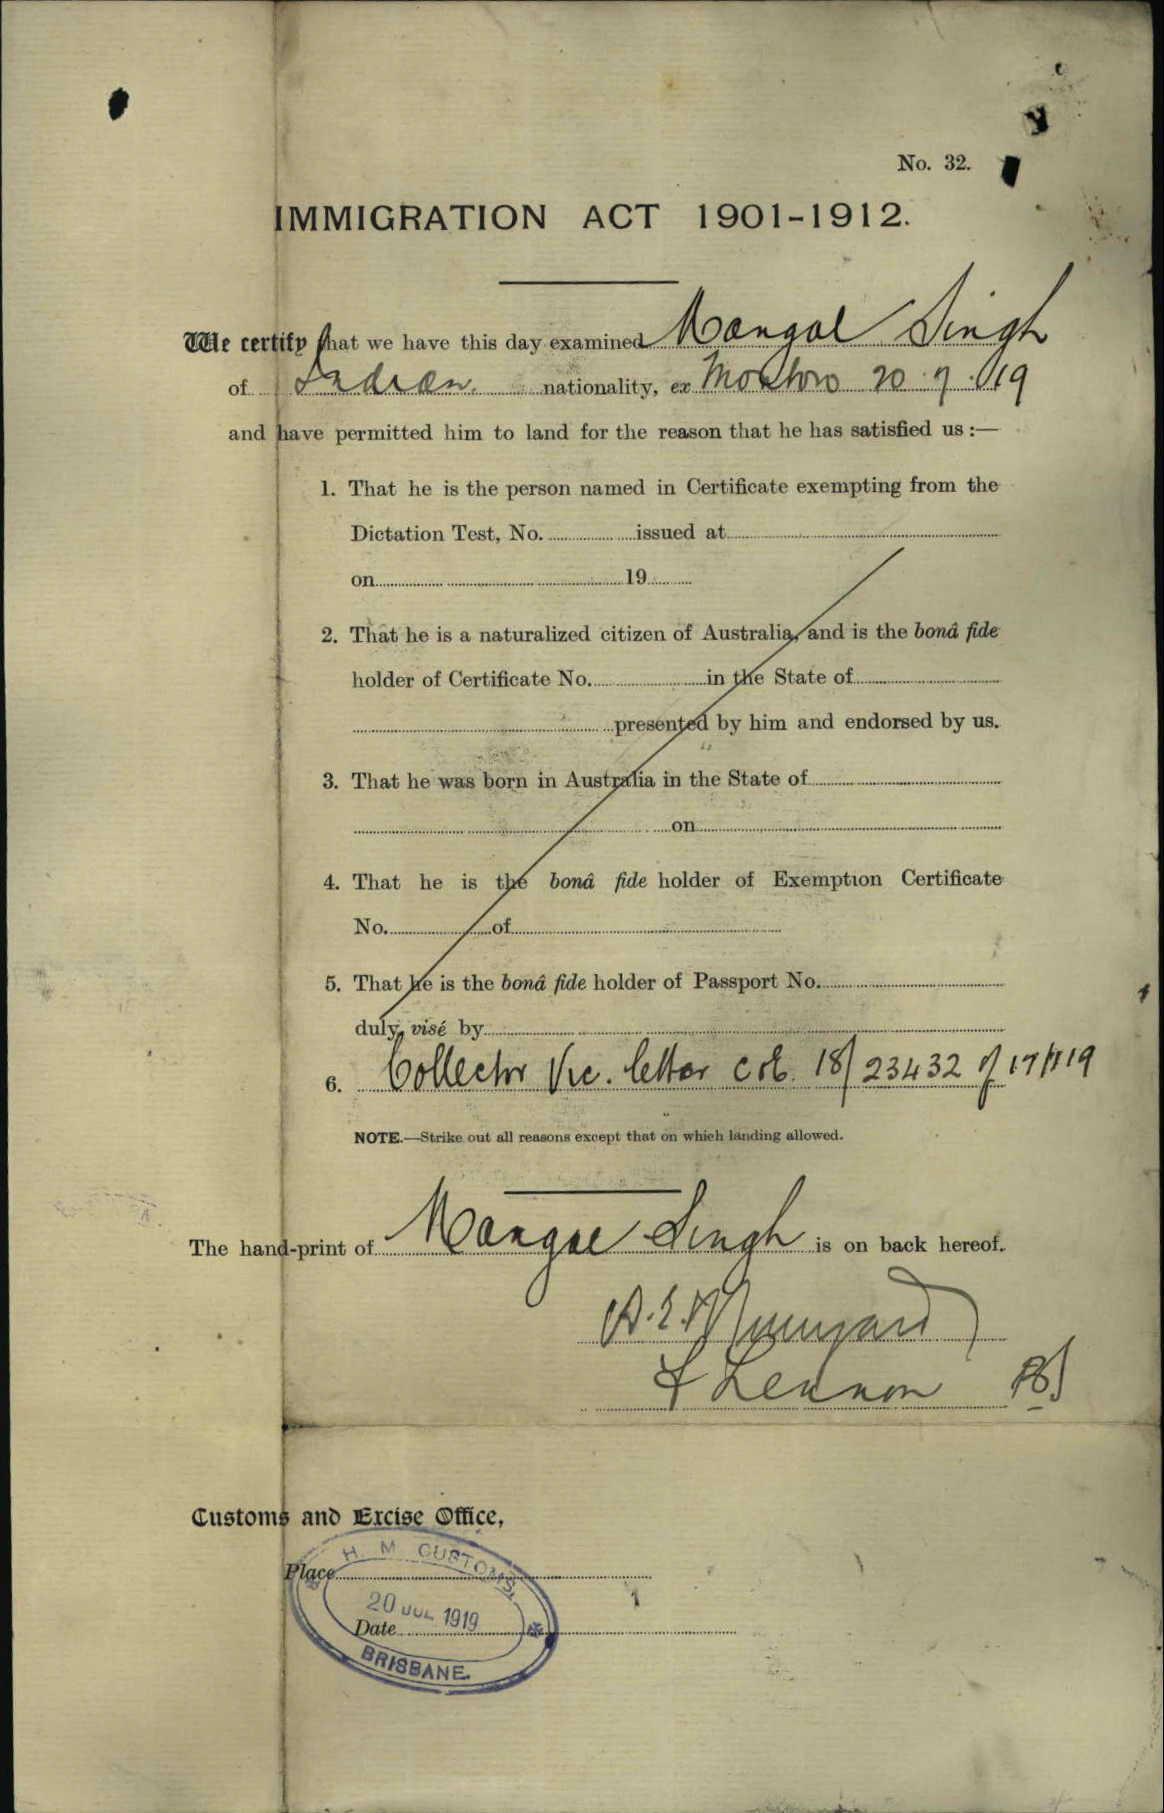 No. 32.
IMMIGRATION ACT 1901-1912.
We certify that we have this day examined Mangal Singh
of Indian nationality, ex 20.7.19
and have permitted him to land for the reason that he has satisfied us :—
1. That he is the person named in Certificate exempting from the
Dictation Test, No. issued at
on 19
2. That he is a naturalized citizen of Australia, and is the bonâ fide
holder of Certificate No. in the State of
presented by him and endorsed by us.
3. That he was born in Australia in the State of
on
4. That he is the bonâ fide holder of Exemption Certificate
No. of
5. That he is the bonâ fide holder of Passport No.
duly visé by
6. Collector Vic. letter 18/23432 of 17/7/19
NOTE.—Strike out all reasons except that on which landing allowed.
The hand-print of Mangal Singh is on back hereof.
Lennon
Customs and Excise Office,
H. M. CUSTOMS.
Place
20 JUL 1919
Date
BRISBANE.